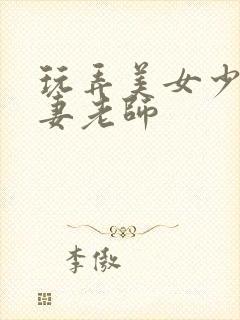 玩弄美女少
妻老師
李傲